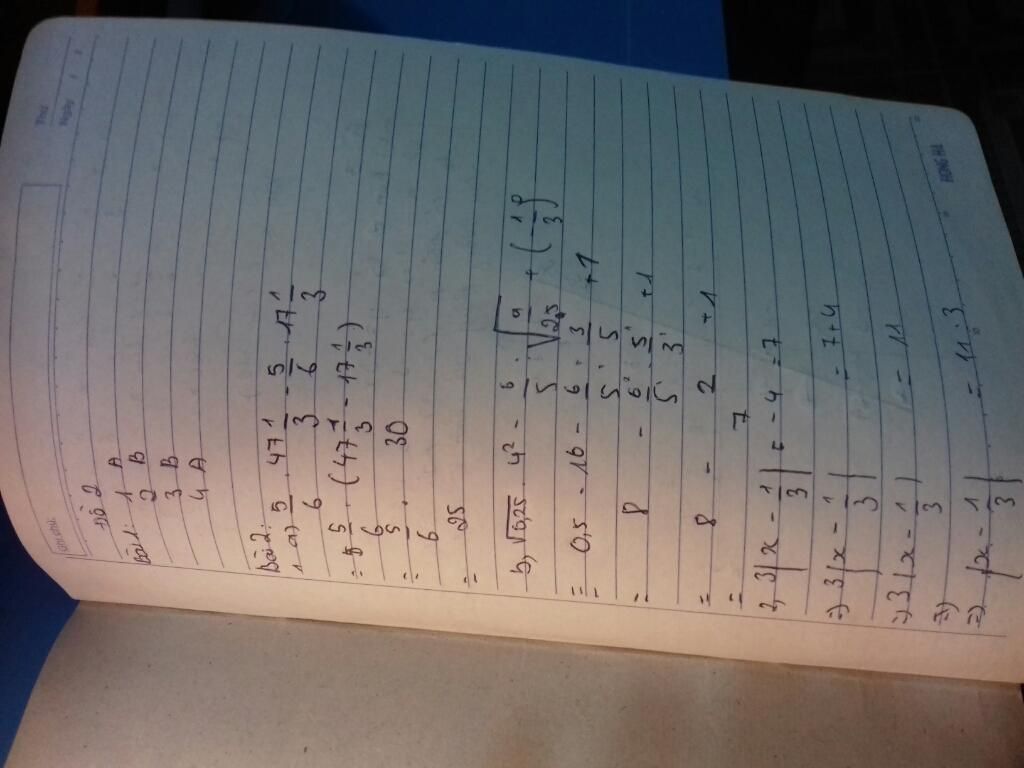 Thứ
Ngày
Ghi chú
Đề 2
Bài 1: 1 A
2 B
3 B
4 A
Bài 2:
1. a) 5/6 . 47 1/3 - 5/6 . 17 1/3
= 5/6 . (47 1/3 - 17 1/3)
= 5/6 . 30
= 25
b, √0,25 . 4² - 6/5 : √(9/25) + (1/3)⁰
= 0,5 . 16 - 6/5 : 3/5 + 1
= 8 - 6/5 . 5/3 + 1
= 8 - 2 + 1
= 7
2, 3|x - 1/3| - 4 = 7
=> 3|x - 1/3| = 7 + 4
=> 3|x - 1/3| = 11
=> |x - 1/3| = 11 : 3
HỒNG HÀ